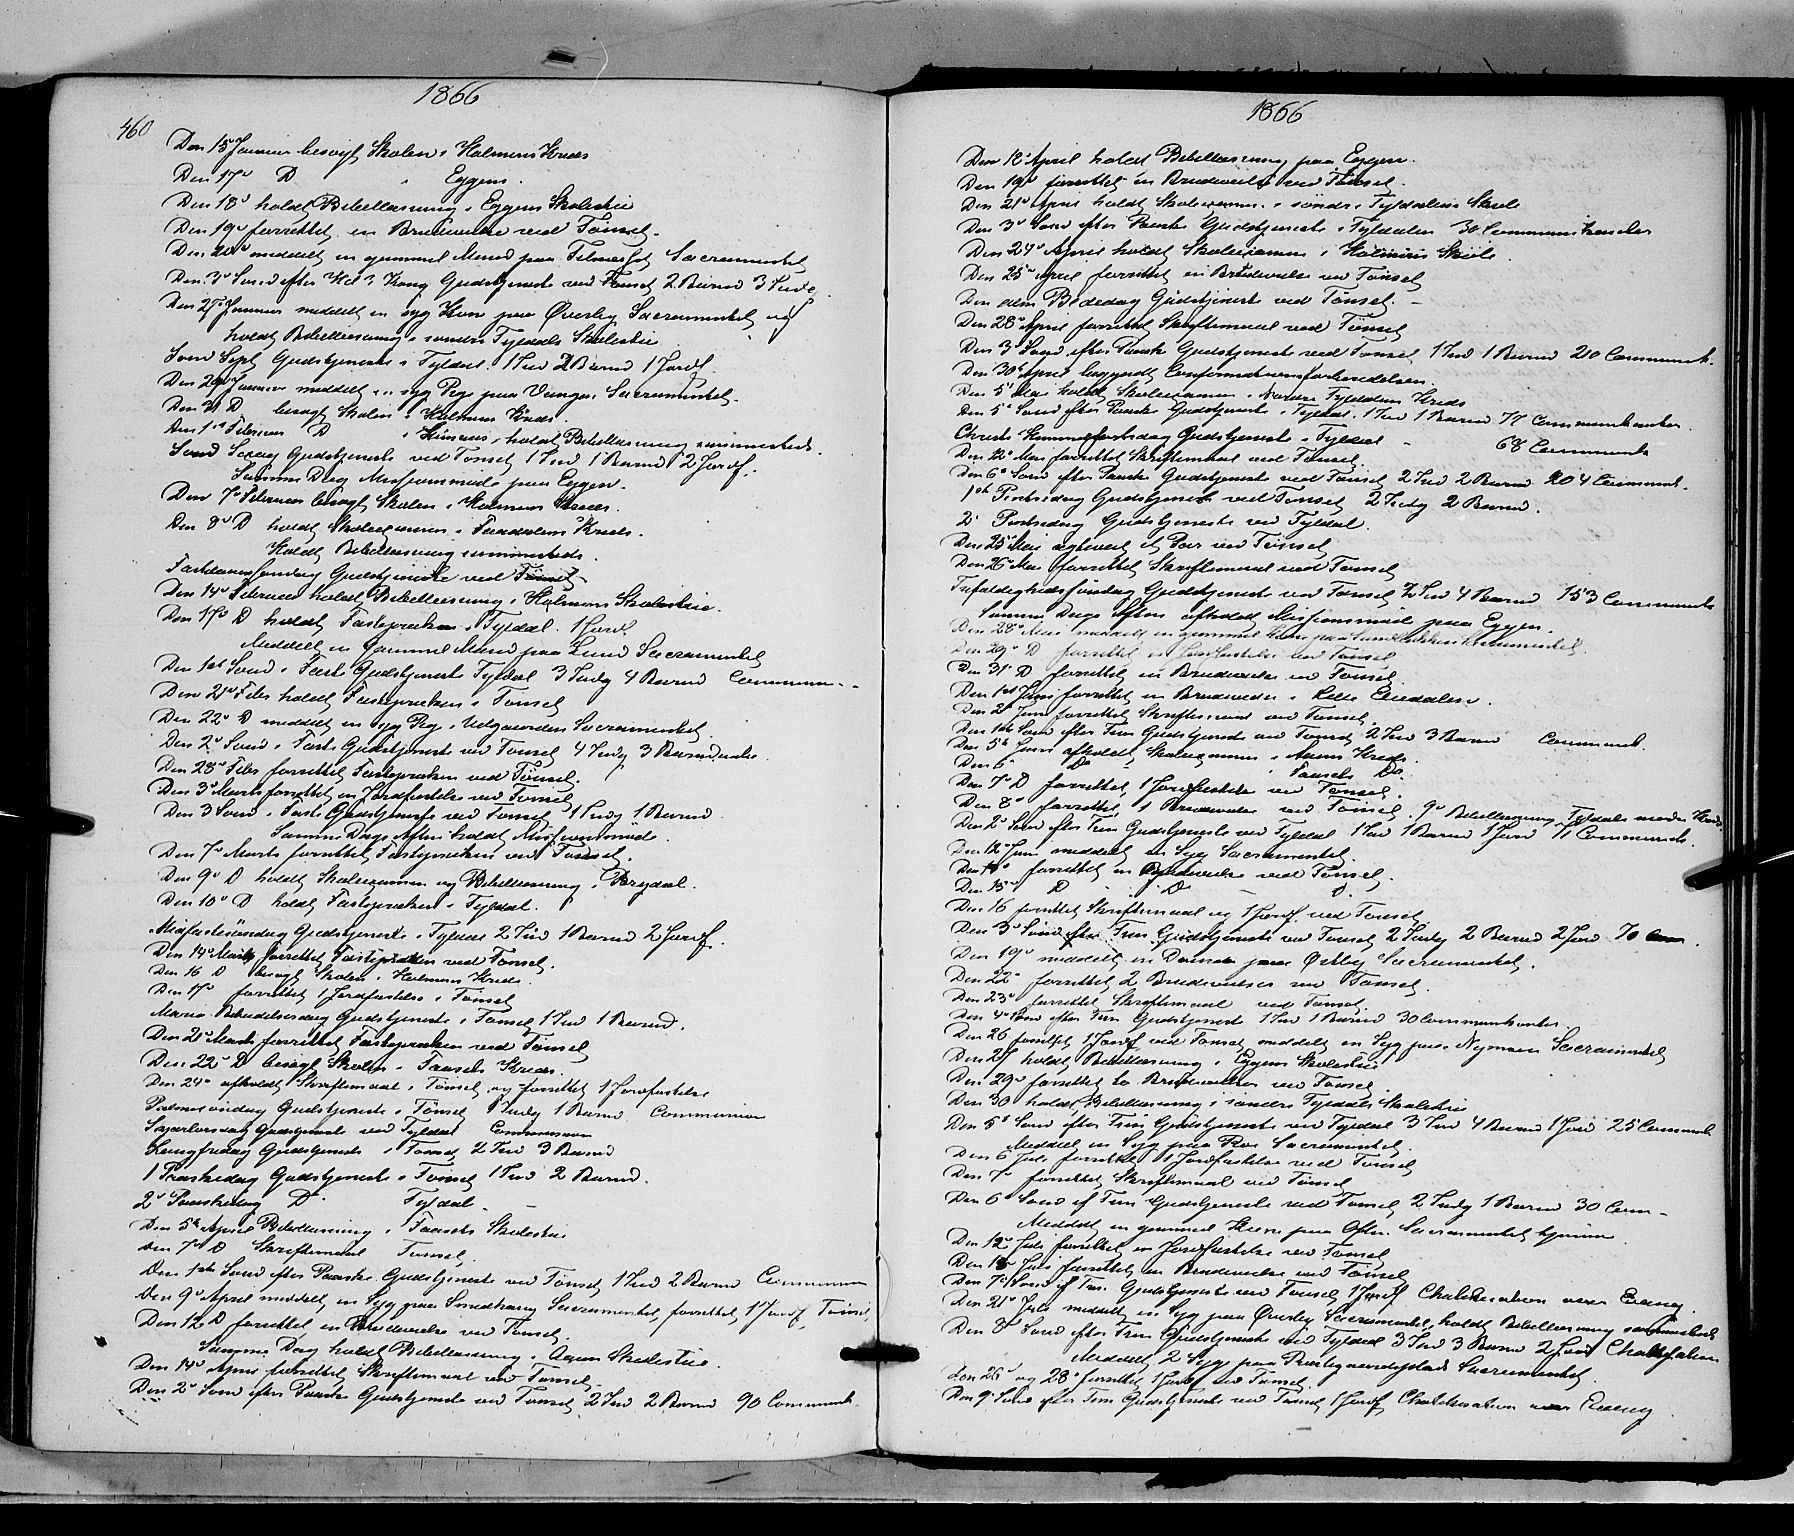 1866
460
Den 15de Januar besøgt Skolen i Holmens Kreds
Den 17de D i Eggens.
Den 18de holdt Bibellæsning i Eggens Skolestue
Den 19de forrettet en Brudevielse ved Tønset.
meddelt en gammel Mand paa Sacramentet
Den 3de Sønd efter Hel 3 Kong Gudstjeneste ved Tønset 2 Barnd 3 Indg
Den 27de Januar meddelt en syg Kone paa Øverby Sacramentet og
holdt Bibellæsning i søndre Tyldals Skolestue
Sønd Sept Gudstjeneste i Tyldal 1 Ind 2 Barnd 1 Jordf.
Den 29de Januar meddelt en syg Pige paa Vangen Sacramentet.
Den 31 D besøgt Skolen i Holmens Kreds.
Den 1ste Februar D i holdt Bibellæsning sammesteds.
Sønd Sexag Gudstjeneste ved Tønset 1 Ind 1 Barnd 2 Jordf.
Samme Dag Missionsmøde paa Eggen.
Den 7de Februar besøgt Skolen i Holmens Kreds.
Den 8de D holdt Skoleexamen i Faadalens Kreds.
Holdt Bibellæsning sammesteds.
Fastelavnssøndag Gudstjeneste ved Tønset
Den 14de Februar holdt Bibellæsning i Holmens Skolestue.
Den 17de D holdt Fasteprædiken i Tyldal. 1 Jordf.
Meddelt en gammel Mand paa Lund Sacramentet
Den 1ste Sønd i Faste Gudstjeneste Tyldal 3 Indg 4 Barnd Communion
Den 21de Febr holdt Fasteprædiken i Tønset
Den 22de D meddelt en syg Pig i Utgaarden Sacramentet.
Den 2de Sønd i Faste Gudstjeneste ved Tønset 4 Indg 3 Barnd
Den 28de Febr forrettet Fasteprædiken ved Tønset.
Den 3de Marts forrettet en Jordfæstelse ved Tønset
Den 3 Sønd i Faste Gudstjeneste ved Tønset 1 Indg 1 Barnd
Samme Dags Aften holdt Missionsmøde.
Den 7de Marts forrettet Fasteprædiken ved Tønset.
Den 9de D holdt Skoleexamen og Bibellæsning i Brydal.
Den 10de D holdt Fasteprædiken i Tyldal.
Midfastesøndag Gudstjeneste i Tyldal 2 Ind 1 Barnd 2 Jordf.
Den 14de Marts forrettet Fasteprædiken ved Tønset.
Den 16 D besøgt Skolen i Holmens Kreds.
Den 17de forrettet 1 Jordfæstelse i Tønset
Mariæ Bebudelsesdag Gudstjeneste i Tønset 1 Ind 1 Barnd.
Den 21de Marts forrettet Fasteprædiken ved Tønset
Den 22de D besøgt Skolen i Faasets Kreds.
Den 24de afholdt Skriftemaal i Tønset og forrettet 1 Jordfæstelse
Palmesøndag Gudstjeneste i Tønset 1 Indg 1 Barnd Communion
Skjærtorsdag Gudstjeneste ved Tyldal Communion
Langfredag Gudstjeneste i Tønset 2 Ind 3 Barnd
1 Paaskedag Gudstjeneste i Tønset 1 Ind 2 Barnd.
2de Paaskedag D Tyldal
Den 5te April Bibellæsning i Faasets Skolestue
Den 7de D Skriftemaal Tønset
Den 1ste Sønd efter Paaske Gudstjeneste ved Tønset 1 Ind 2 Barnd Communion
Den 9de April meddelt en Syg paa Smedhaug Sacramentet, forrettet 1 Jordf Tønset
Den 12 D forrettet en Brudevielse ved Tønset.
Samme Dag holdt Bibellæsning i Aaens Skolestue.
Den 14de April forrettet Skriftemaal ved Tønset.
Den 2de Sønd efter Paaske Gudstjeneste ved Tønset 2 Ind 2 Barnd 90 Communk.
1866
Den 18 April holdt Bibellæsning paa Eggen.
Den 19de forrettet en Brudevielse ved Tønset.
Den 21de April holdt Skoleexamen i søndre Tyldalens Skole
Den 3de Sønd efter Paaske Gudstjeneste i Tyldalen 30 Communikanter
Den 24de April holdt Skoleexamen i Holmens Skole.
Den 25de April forrettet en Brudevielse ved Tønset
Den alm Bededag Gudstjeneste ved Tønset.
Den 28de April forrettet Skriftemaal ved Tønset
Den Sønd efter Paaske Gudstjeneste ved Tønset 1 Ind 1 Barnd 20 Communk.
Den 30te April begyndt Confirmationsforberedelsen.
Den 5te Mai holdt Skoleexamen i Nordre Tyldalens Kreds
Den 5te Sønd efter Paaske Gudstjeneste i Tyldal. 1 Ind 1 Barnd Communikanter.
Christi Himmelfartsdag Gudstjeneste i Tyldal 68 Communk
Den 12te Mai forrettet Skriftemaal ved Tønset.
Den 6te Sønd efter Paaske Gudstjeneste ved Tønset 2 Ind 2 Barnd 204 Communk.
1ste Pintsedag Gudstjeneste ved Tønset 2 Indg 2 Barnd.
2. Pintsedag Gudstjeneste ved Tyldal.
Den 25de Mai ægteviet et Par ved Tønset
Den 26de Mai forrettet Skriftemaal ved Tønset
Trefoldighedssøndag Gudstjeneste ved Tønset 2 Ind 4 Barnd 153 Communk
Samme Dags Aften afholdt Missionsmøde paa Eggen.
Den 28de Mai meddelt en gammel Kone paa Sacramentet.
Den 29de D forrettet en Jordfæstelse ved Tønset
Den 31 D forrettet en Brudevielse ved Tønset
Den 1ste Juni forrettet en Brudevielse i Lille Elvedalen.
Den 2de Juni forrettet Skriftemaal ved Tønset.
Den 1ste Sønd efter Trin Gudstjeneste ved Tønset 2 Ind 3 Barnd Communk.
Den 5te Juni afholdt Skoleexamen i Aaens Kreds.
Den 6te Do i Faasets Do.
Den 7de D forrettet 1 Jordfæstelse ved Tønset.
Den 8de forrettet 1 Brudevielse ved Tønset. 9de Bibellæsning Tyldals nordre Kreds
Den 2de Sønd efter Trin Gudstjeneste ved Tyldal 1 Ind 1 Barnd 1 Jord Communk.
Den 12te Juni meddelt en Syg Sacramentet.
forrettet en Brudevielse ved Tønset.
Den 15de D D
Den 16 forrettet Skriftemaal og 1 Jordf. ved Tønset
Den 3de Sønd efter Trin Gudstjeneste ved Tønset 2 Indg 2 Barnd 2 Jord 70 Com.
Den 19de meddelt en paa Østby Sacramentet.
Den 22de forrettet 2 Brudevielser ved Tønset.
Den 23de forrettet Skriftemaal ved Tønset.
Den 4de Sønd efter Trin Gudstjeneste 1 Ind 1 Barnd 30 Communikanter.
Den 26 forrettet 1 Jordf ved Tønset meddelt en Syg paa Nymoen Sacramentet
Den 27 holdt Bibellæsning i Eggens Skolestue
Den 29de forrettet to Brudevielser ved Tønset
Den 30 holdt Bibellæsning i søndre Tyldals Skolestue
Den 5te Sønd efter Trin Gudstjeneste ved Tyldal 3 Ind 4 Barnd 1 Jord 25 Communk
Meddelt en Syg paa Sacramentet.
Den 6 Juli forrettet 1 Jordfæstelse ved Tønset
Den 7de forrettet Skriftemaal ved Tønset
Den 6te Sønd ef Trin Gudstjeneste ved Tønset 2 Indg 1 Barnd 30 Com
Meddelt en gammel Kone paa Sacramentet hjemme.
Den 12te Juli forrettet en Jordfæstelse ved Tønset
Den Juli forrettet en Brudevielse ved Tønset
Den 7de Sønd ef Trin Gudstjeneste ved Tønset 1 Jordf Chatekisation over Evang.
Den 21de Juli meddelt en Syg paa Øverby Sacramentet, holdt Bibellæsning sammesteds
Den 8de Sønd efter Trin Gudstjeneste ved Tyldal 3 Ind 3 Barnd 2 Jord Chatekisation
Meddelt 2 Syge paa Sacramentet.
Den 26de og 28de forrettet 1 Jordf ved Tønset.
Den 9de Sønd efter Trin Gudstjeneste ved Tønset 1 Jordf Chatekisation over Evang